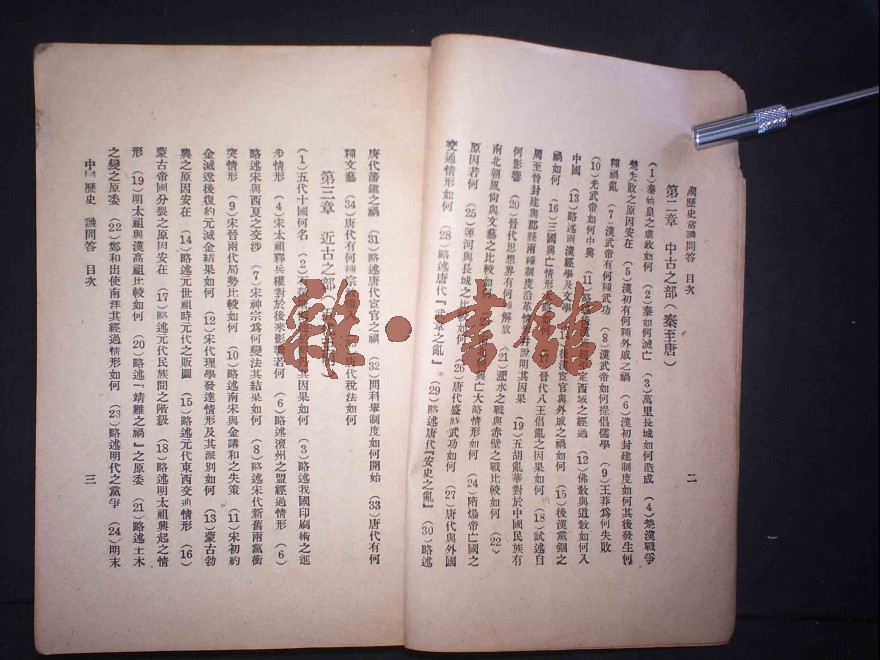 國歷史常識問答 目次
二
第二章 中古之部(秦至唐)
(1)秦始皇之虐政如何 (2)秦如何滅亡 (3)萬里長城如何造成 (4)楚漢戰爭
楚失敗之原因安在 (5)漢初有何種外戚之禍 (6)漢初封建制度如何其後發生何
種禍亂 (7)漢武帝有何種武功 (8)漢武帝如何提倡儒學 (9)王莽爲何失敗
(10)光武帝如何中興 (11)略述後漢 定西域之經過 (12)佛敎與道敎如何入
中國 (13)略述兩漢經學及文學 後漢宦官與外戚之禍如何 (15)後漢黨錮之
禍如何 (16)三國興亡情形 晉代八王倡亂之因果如何 (18)試述自
周至晉封建與郡縣兩種制度沿革 說明其因果 (19)五胡亂華對於中國民族有
何影響 (20)晉代思想界有何種解放 (21)淝水之戰與赤壁之戰比較如何 (22)
南北朝風尙與文藝之比較如何 興亡大略情形如何 (24)隋煬帝亡國之
原因若何 (25)運河與長城之 如何 (26)唐代盛時武功如何 (27)唐代與外國
交通情形如何 (28)略述唐代『武韋之亂』 (29)略述唐代『安史之亂』 (30)略述
唐代藩鎭之禍 (31)略述唐代宦官之禍 (32)問科舉制度如何開始 (33)唐代有何
種文藝 (34)唐代有何種宗敎 唐代稅法如何
第三章 近古之部
(1)五代十國何名 (2)石 其因果如何 (3)略述我國印刷術之進
步情形 (4)宋太祖釋兵權對於後來影響若何 (6)略述澶州之盟經過情形 (6)
略述宋與西夏之交涉 (7)宋神宗爲何變法其結果如何 (8)略述宋代新舊兩黨衝
突情形 (9)宋晉兩代局勢比較如何 (10)略述南宋與金講和之失策 (11)宋初約
金滅遼後復約元滅金結果如何 (12)宋代理學發達情形及其派別如何 (13)蒙古勃
興之原因安在 (14)略述元世祖時元代之版圖 (15)略述元代東西交通情形 (16)
蒙古帝國分裂之原因安在 (17)略述元代民族間之階級 (18)略述明太祖興起之情
形 (19)明太祖與漢高祖比較如何 (20)略述『靖難之禍』之原委 (21)略述土木
之變之原委 (22)鄭和出使南洋其經過情形如何 (23)略述明代之黨爭 (24)明末
中國歷史 識問答 目次
三
雜·書館